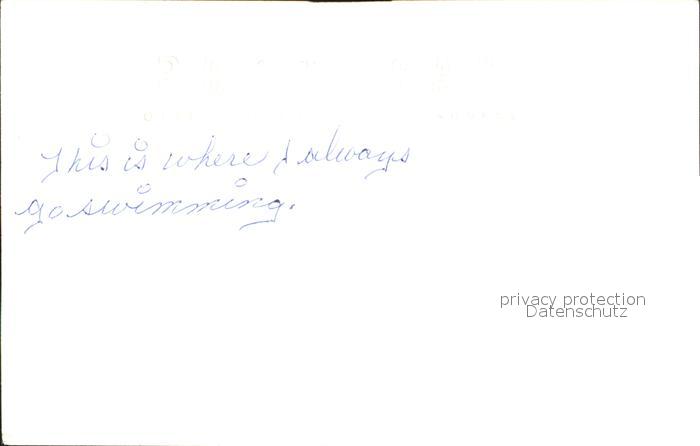 This is where I always
go swimming.
privacy protection
Datenschutz